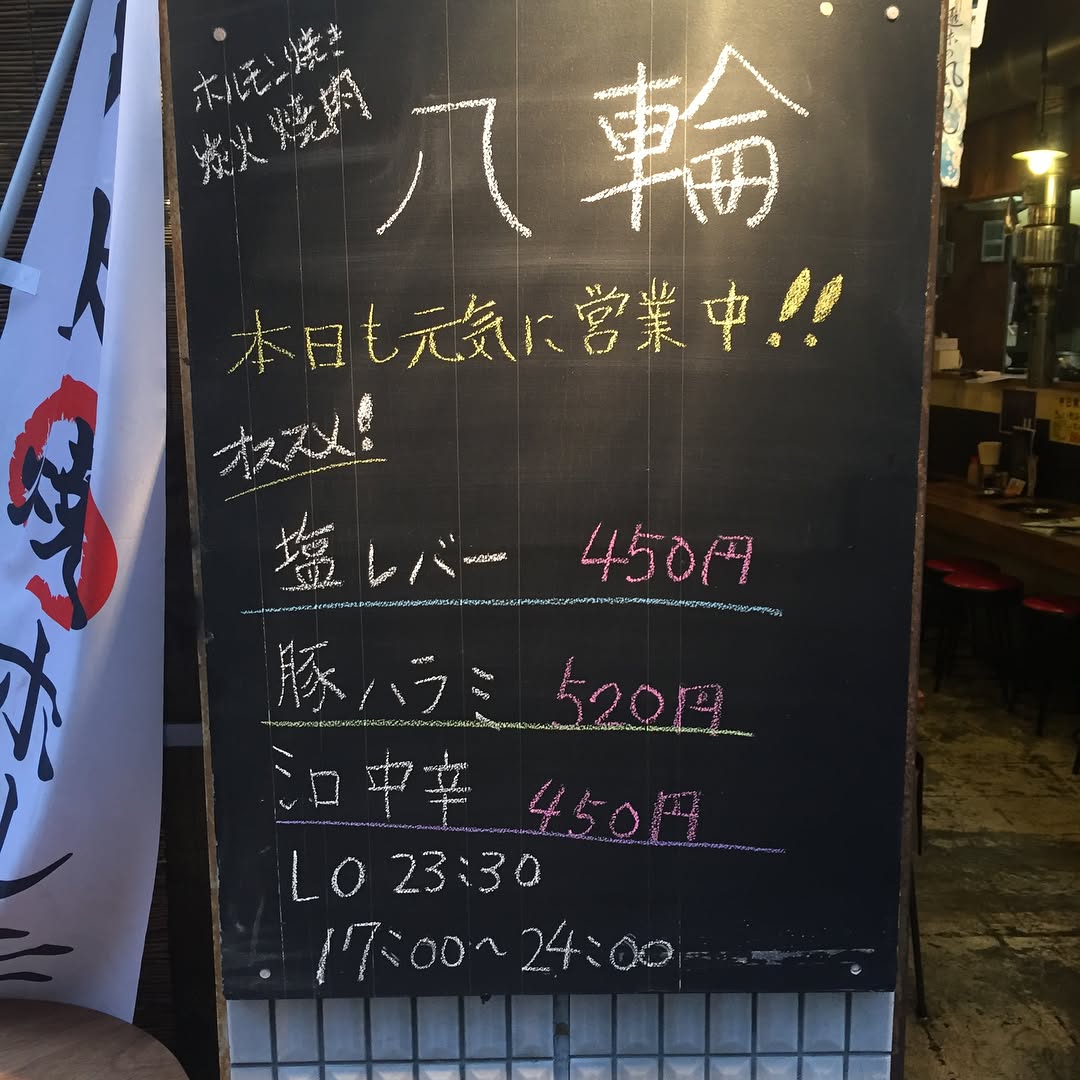 ホルモン焼き
炭火焼肉
八輪
本日も元気に営業中!!
オススメ!
塩レバー 450円
豚ハラミ 520円
ミロ中辛 450円
LO 23:30
17:00〜24:00